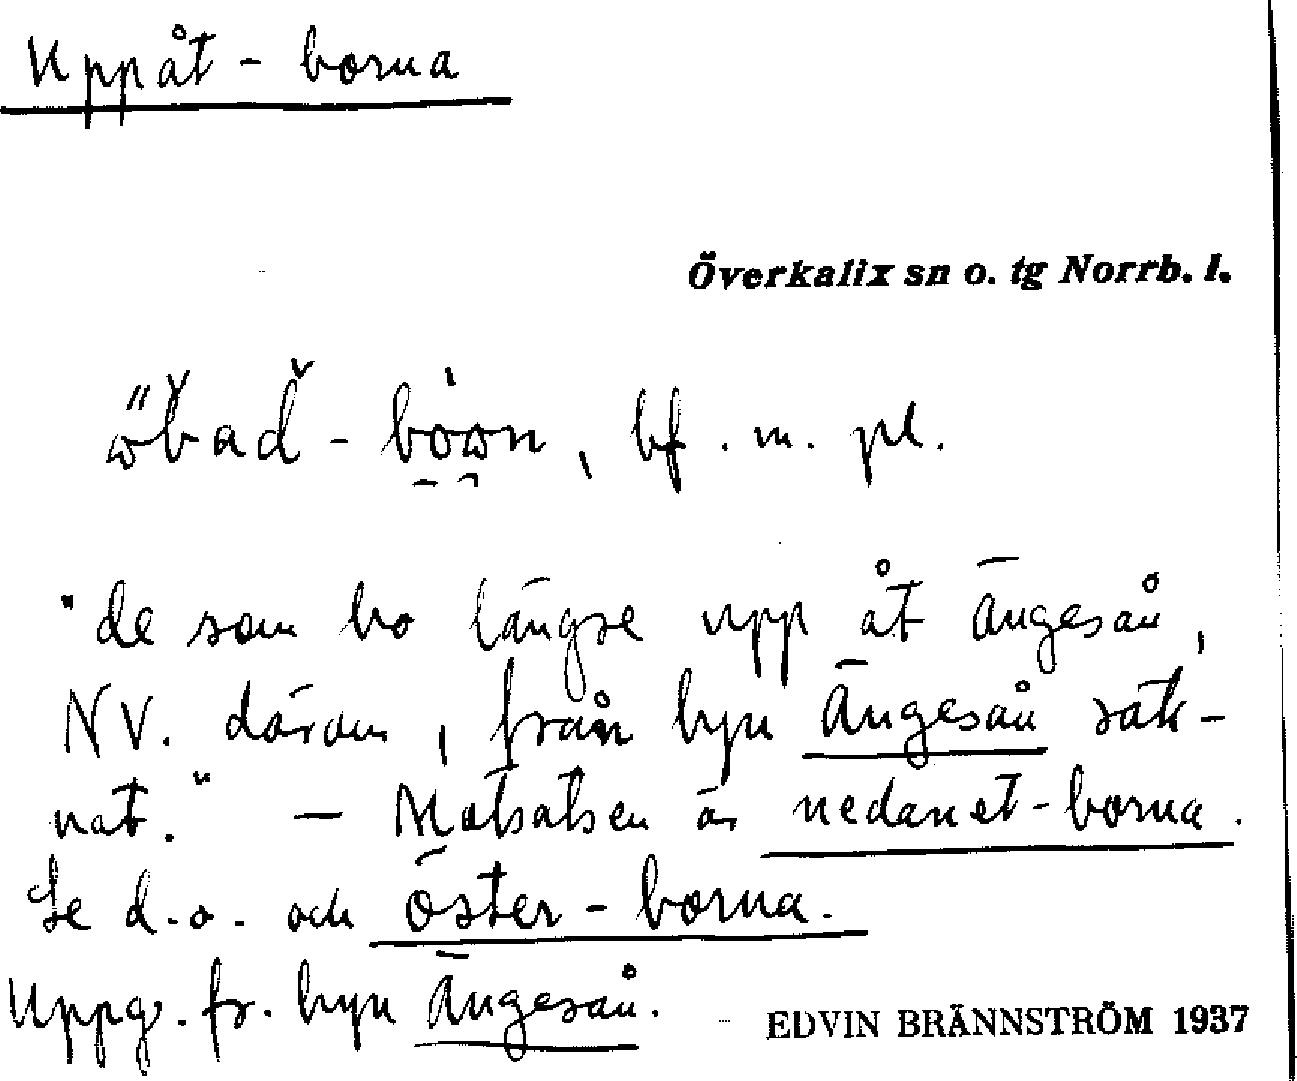 Uppåt - borna
Överkalix sn o. tg Norrb. l.
bf. m. pl.
"de som bo längre upp åt Ängesån,
NV. därom, från byn Ängesån räk-
nat." — Motsatsen är nedanet-borna.
Se d.o. och öster-borna.
Uppg. fr. byn Ängesån.
EDVIN BRÄNNSTRÖM 1937